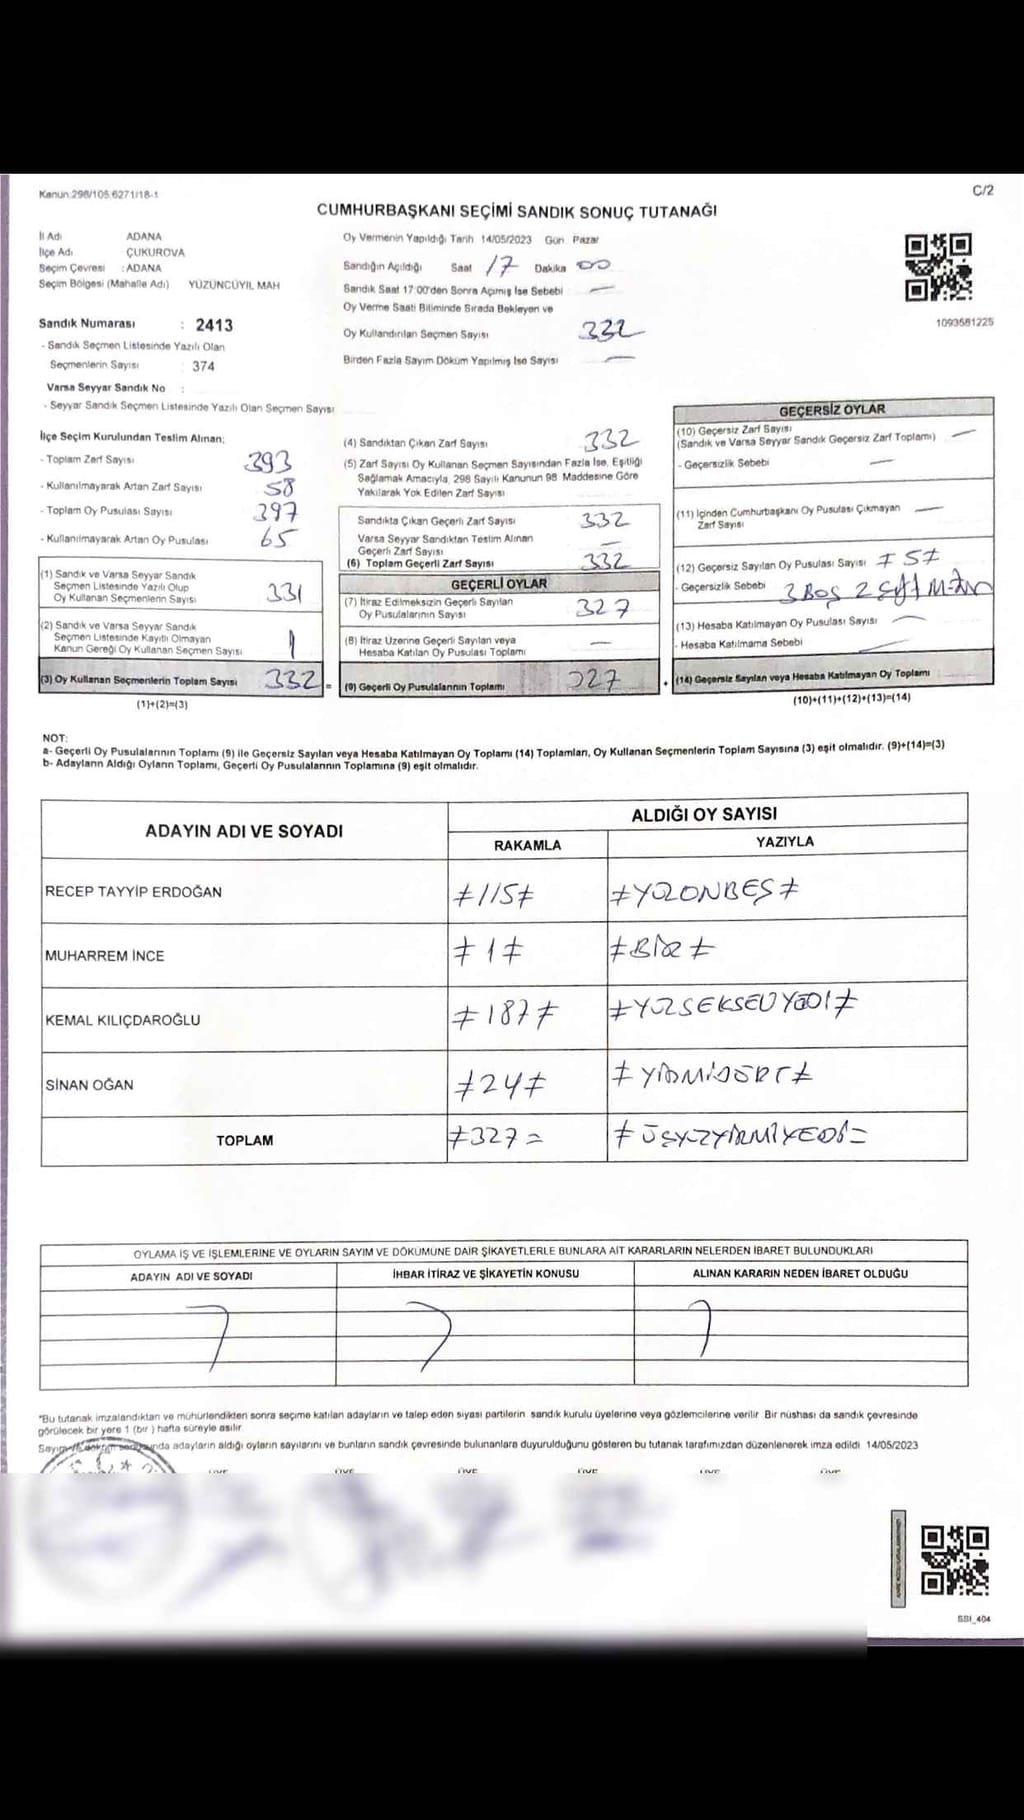 Kanun:298/105.6271/18-1
C/2
CUMHURBAŞKANI SEÇİMİ SANDIK SONUÇ TUTANAĞI
İl Adı ADANA
İlçe Adı ÇUKUROVA
Seçim Çevresi : ADANA
Seçim Bölgesi (Mahalle Adı) YÜZÜNCÜYIL MAH
Sandık Numarası : 2413
- Sandık Seçmen Listesinde Yazılı Olan
Seçmenlerin Sayısı : 374
Varsa Seyyar Sandık No :
- Seyyar Sandık Seçmen Listesinde Yazılı Olan Seçmen Sayısı
Oy Vermenin Yapıldığı Tarih 14/05/2023 Gün Pazar
Sandığın Açıldığı Saat 17 Dakika 00
Sandık Saat 17:00'den Sonra Açımış İse Sebebi —
Oy Verme Saati Bitiminde Sırada Bekleyen ve
Oy Kullandırılan Seçmen Sayısı 332
Birden Fazla Sayım Döküm Yapılmış İse Sayısı —
1093581225
İlçe Seçim Kurulundan Teslim Alınan;
- Toplam Zarf Sayısı 393
- Kullanılmayarak Artan Zarf Sayısı 58
- Toplam Oy Pusulası Sayısı 397
- Kullanılmayarak Artan Oy Pusulası 65
(1) Sandık ve Varsa Seyyar Sandık
Seçmen Listesinde Yazılı Olup
Oy Kullanan Seçmenlerin Sayısı 331
(2) Sandık ve Varsa Seyyar Sandık
Seçmen Listesinde Kayıtlı Olmayan
Kanun Gereği Oy Kullanan Seçmen Sayısı 1
(3) Oy Kullanan Seçmenlerin Toplam Sayısı 332 =
(1)+(2)=(3)
(4) Sandıktan Çıkan Zarf Sayısı 332
(5) Zarf Sayısı Oy Kullanan Seçmen Sayısından Fazla İse, Eşitliği
Sağlamak Amacıyla, 298 Sayılı Kanunun 98 Maddesine Göre
Yakılarak Yok Edilen Zarf Sayısı
Sandıkta Çıkan Geçerli Zarf Sayısı 332
Varsa Seyyar Sandıktan Teslim Alınan
Geçerli Zarf Sayısı —
(6) Toplam Geçerli Zarf Sayısı 332
GEÇERLİ OYLAR
(7) İtiraz Edilmeksizin Geçerli Sayılan
Oy Pusulalarının Sayısı 327
(8) İtiraz Üzerine Geçerli Sayılan veya
Hesaba Katılan Oy Pusulası Toplamı —
(9) Geçerli Oy Pusulalarının Toplamı 327 +
GEÇERSİZ OYLAR
(10) Geçersiz Zarf Sayısı
(Sandık ve Varsa Seyyar Sandık Geçersiz Zarf Toplamı) —
- Geçersizlik Sebebi —
(11) İçinden Cumhurbaşkanı Oy Pusulası Çıkmayan —
Zarf Sayısı
(12) Geçersiz Sayılan Oy Pusulası Sayısı ≠5≠
- Geçersizlik Sebebi 3 BOŞ 2
(13) Hesaba Katılmayan Oy Pusulası Sayısı —
- Hesaba Katılmama Sebebi —
(14) Geçersiz Sayılan veya Hesaba Katılmayan Oy Toplamı
(10)+(11)+(12)+(13)=(14)
NOT:
a- Geçerli Oy Pusulalarının Toplamı (9) ile Geçersiz Sayılan veya Hesaba Katılmayan Oy Toplamı (14) Toplamları, Oy Kullanan Seçmenlerin Toplam Sayısına (3) eşit olmalıdır. (9)+(14)=(3)
b- Adayların Aldığı Oyların Toplamı, Geçerli Oy Pusulalarının Toplamına (9) eşit olmalıdır.
ADAYIN ADI VE SOYADI
ALDIĞI OY SAYISI
RAKAMLA YAZIYLA
RECEP TAYYİP ERDOĞAN ≠115≠ ≠YÜZONBEŞ≠
MUHARREM İNCE ≠1≠ ≠BİR≠
KEMAL KILIÇDAROĞLU ≠187≠ ≠YÜZSEKSENYEDİ≠
SİNAN OĞAN ≠24≠ ≠YİRMİDÖRT≠
TOPLAM ≠327= ≠ÜÇYÜZYİRMİYEDİ=
OYLAMA İŞ VE İŞLEMLERİNE VE OYLARIN SAYIM VE DÖKÜMÜNE DAİR ŞİKAYETLERLE BUNLARA AİT KARARLARIN NELERDEN İBARET BULUNDUKLARI
ADAYIN ADI VE SOYADI İHBAR İTİRAZ VE ŞİKAYETİN KONUSU ALINAN KARARIN NEDEN İBARET OLDUĞU
*Bu tutanak imzalandıktan ve mühürlendikten sonra seçime katılan adayların ve talep eden siyasi partilerin sandık kurulu üyelerine veya gözlemcilerine verilir Bir nüshası da sandık çevresinde
görülecek bir yere 1 (bir ) hafta süreyle asılır
adayların aldığı oyların sayılarını ve bunların sandık çevresinde bulunanlara duyurulduğunu gösteren bu tutanak tarafımızdan düzenlenerek imza edildi 14/05/2023
SSI_404